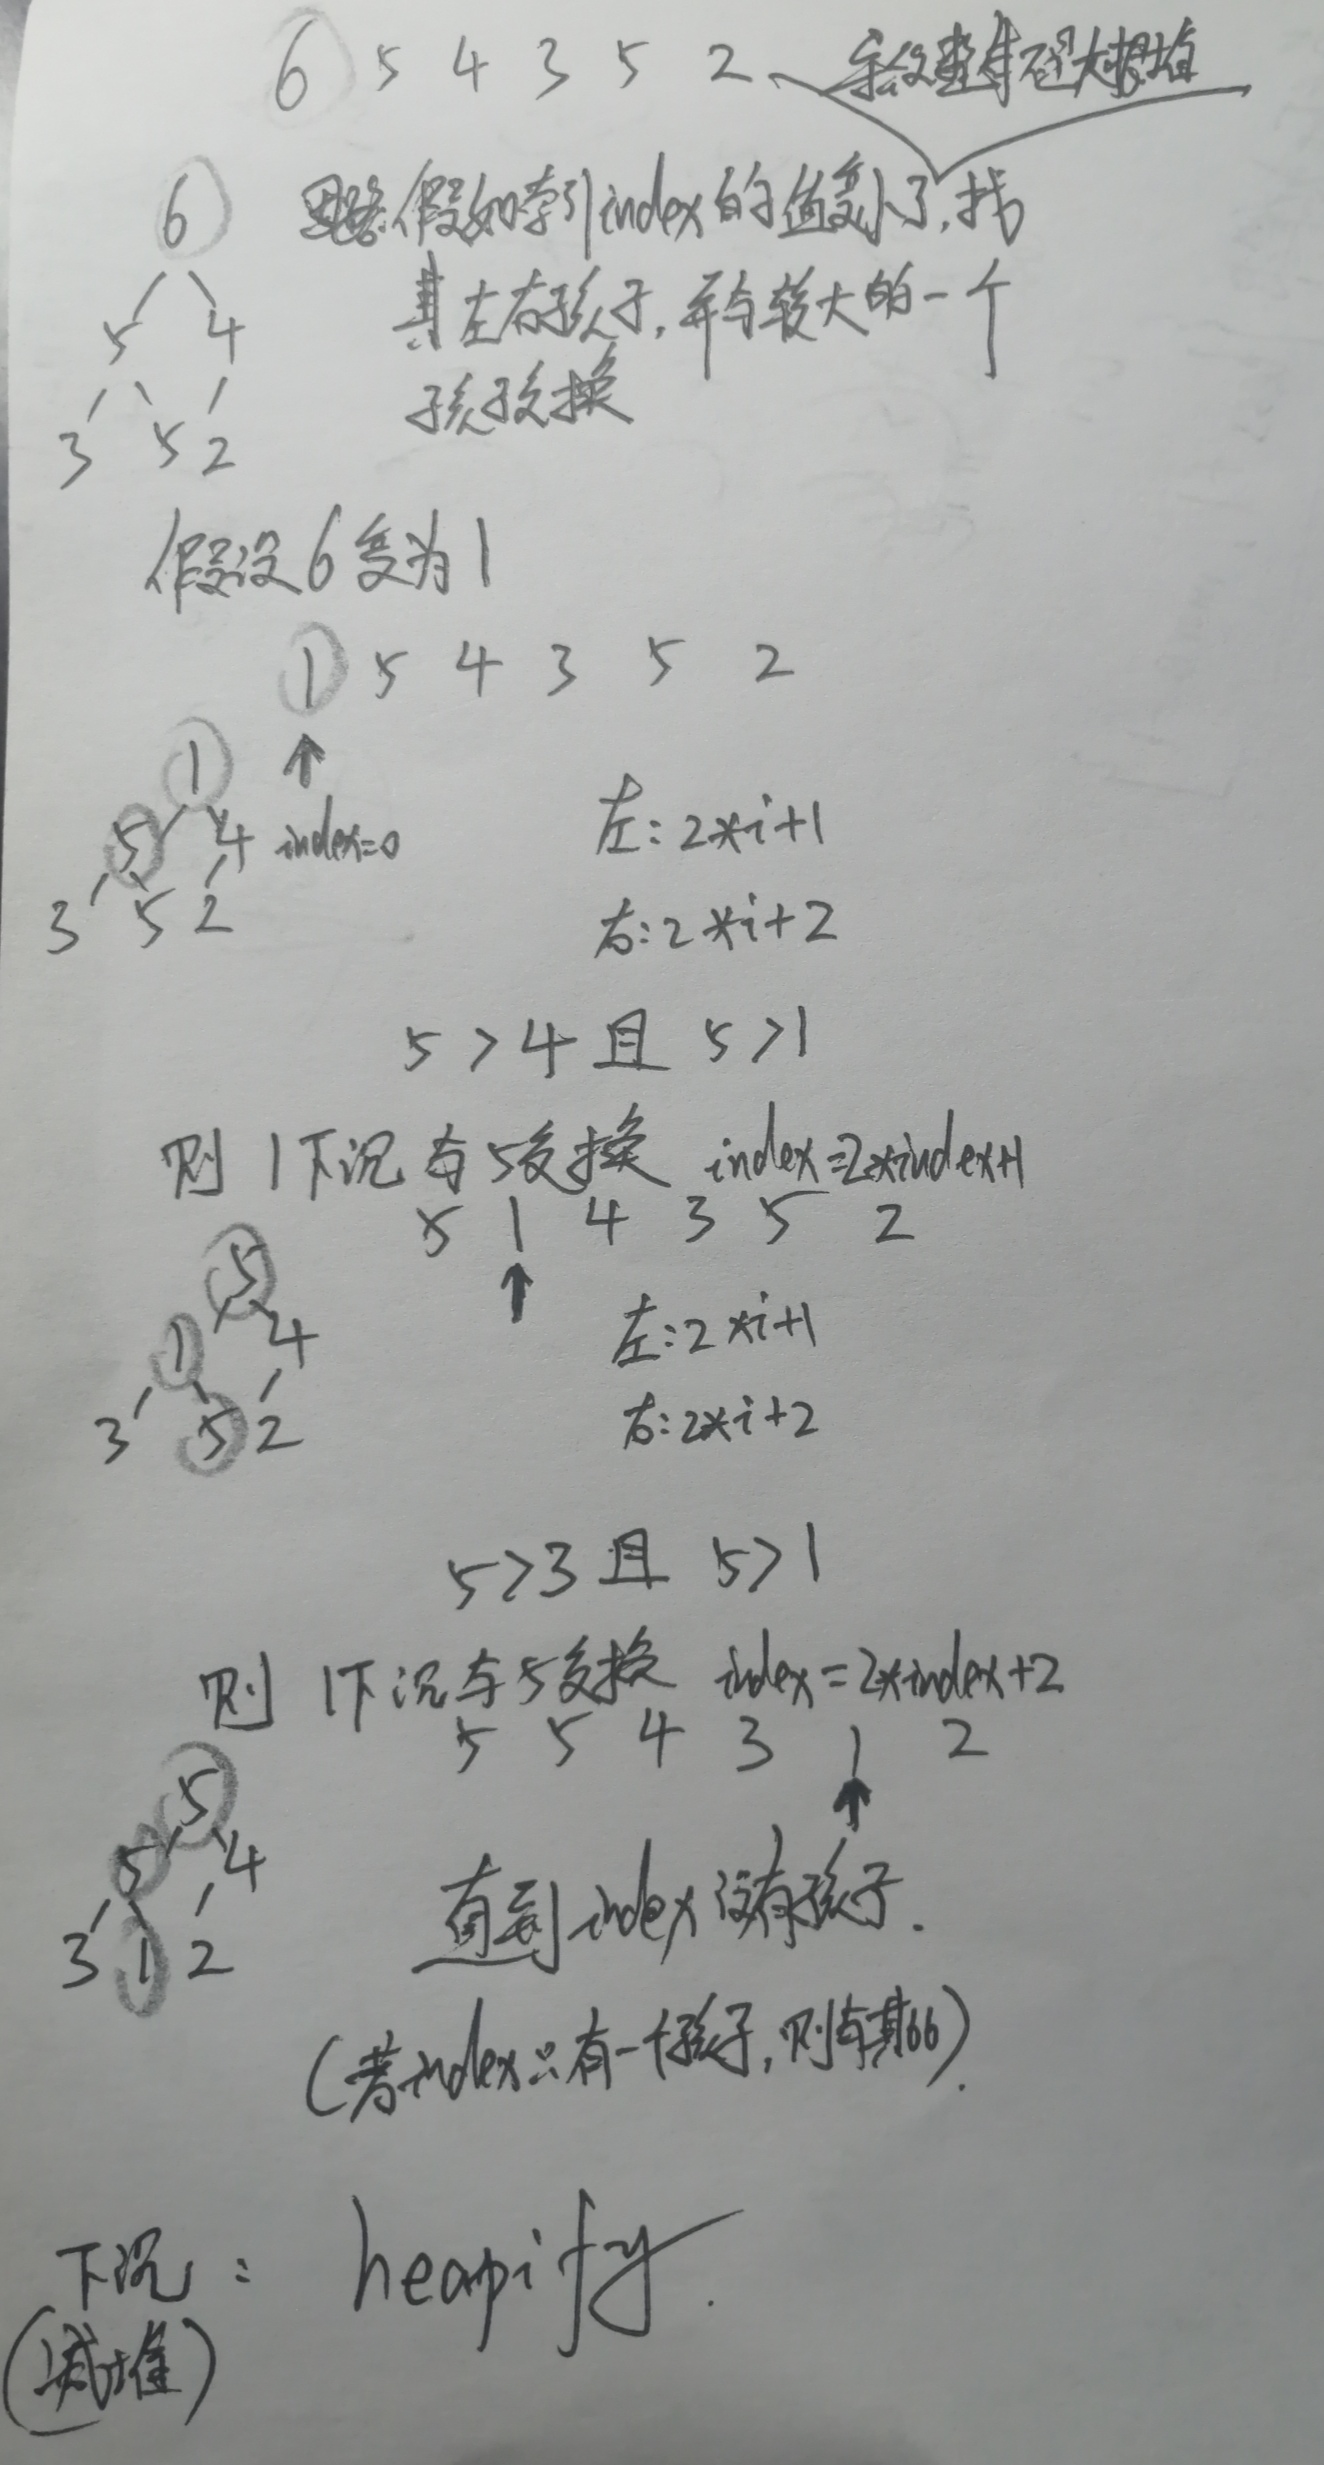 6 5 4 3 5 2 大根堆
6 思路 假如索引index的值变小了,找
5 4 其左右孩子,并与较大的一个
3 5 2 孩子交换
假设6变为1
1 5 4 3 5 2
1
5 4 index=0 左:2*i+1
3 5 2 右:2*i+2
5>4 且 5>1
则 1下沉与5交换 index=2*index+1
5 1 4 3 5 2
5
1 4 左:2*i+1
3 5 2 右:2*i+2
5>3 且 5>1
则 1下沉与5交换 index=2*index+2
5 5 4 3 1 2
5
5 4 直到index没有孩子.
3 1 2
(若index只有一个孩子,则与其比).
下沉: heapify.
(堆)